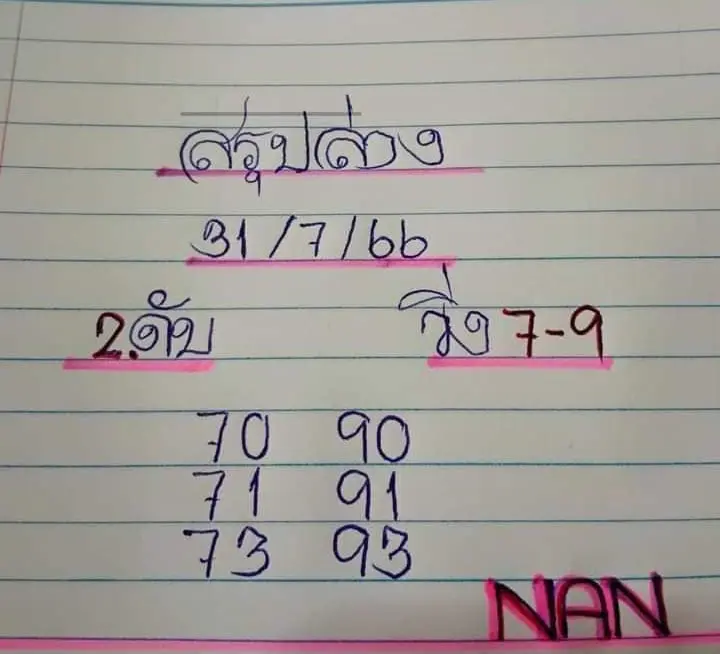 สรุปล่าง
31/7/66
2.ดับ วิ่ง 7-9
70 90
71 91
73 93
NAN